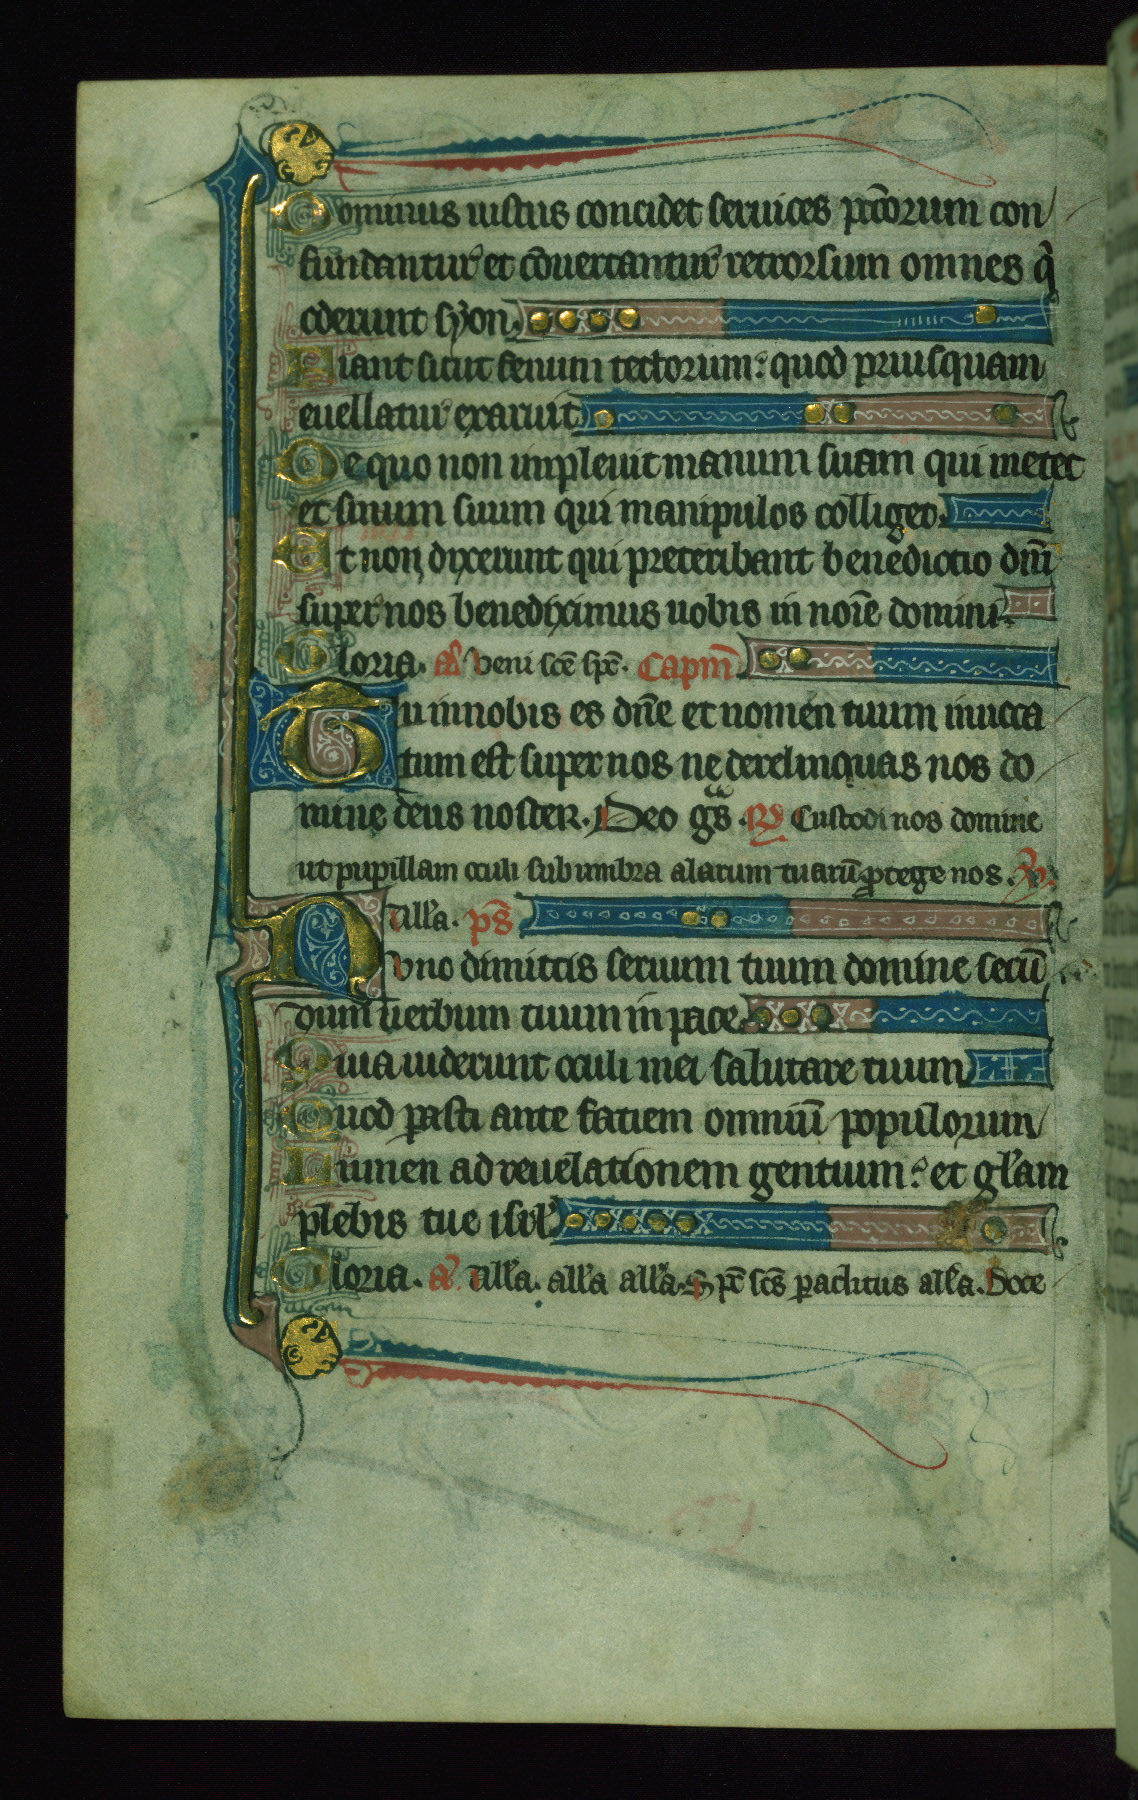 Dominus iustus concidet ceruices pccōrum con
fundantur et cōuertantur retrorsum omnes q̄
oderunt syon.
Fiant sicut fenum tectorum: quod priusquam
euellatur exaruit
De quo non impleuit manum suam qui metet
et sinum suum qui manipulos colliget.
Et non dixerunt qui preteribant benedictio dn̄i
super nos benediximus uobis in noīe domini.
Gloria. añ Veni sc̄e sp̄c. Capm̄
Tu in nobis es dn̄e et nomen tuum inuoca
tum est super nos ne derelinquas nos do
mine deus noster. Deo gs̄. R̄ Custodi nos domine
ut pupillam oculi sub umbra alarum tuarū protege nos. añ
Alla. ps̄
Nunc dimittis seruum tuum domine secū
dum uerbum tuum in pace.
Quia uiderunt oculi mei salutare tuum
Quod parasti ante faciem omniū populorum
Lumen ad reuelationem gentium: et glam
plebis tue isrl
Gloria. a. Alla. alla alla. Sp̄c sc̄s paraclitus alla. Doce